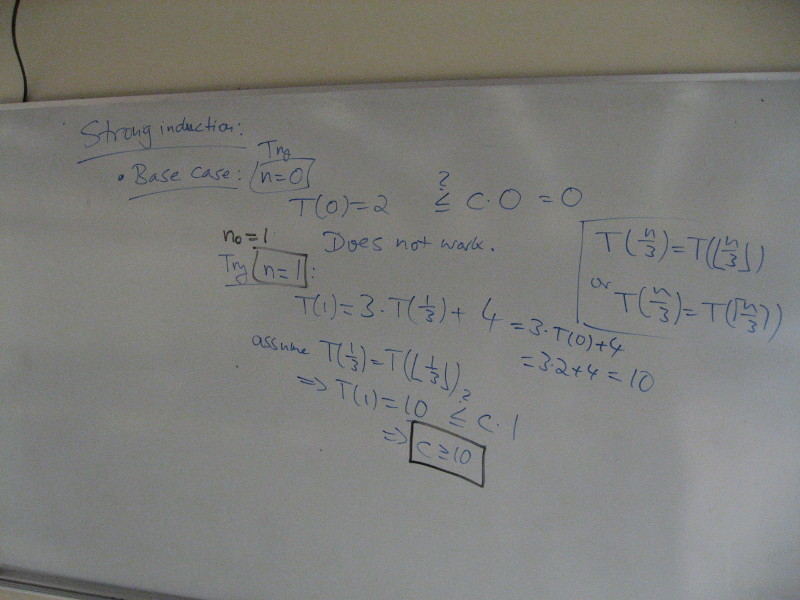 Strong induction:
Try
• Base case: n=0
T(0)=2 ≤? c·0 = 0
n₀=1
Does not work.
Try n=1:
T(1)=3·T(1/3)+4 = 3·T(0)+4
= 3·2+4 = 10
assume T(1/3)=T(⌊1/3⌋)
⇒ T(1)=10 ≤? c·1
⇒ c≥10
T(n/3)=T(⌊n/3⌋)
or T(n/3)=T(⌈n/3⌉)